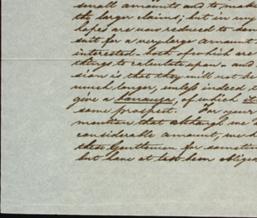 small amounts and to make
the larger claims; but in my
hopes are now reduced to
suit for a very large amount
interested. both of which are
things to calculate upon. and
sion is that they will not be
much longer, unless indeed
give a bonanza, of which it
some prospect. For your
mention that although we
considerable amount, we
these Gentlemen for
but have at last been obliged